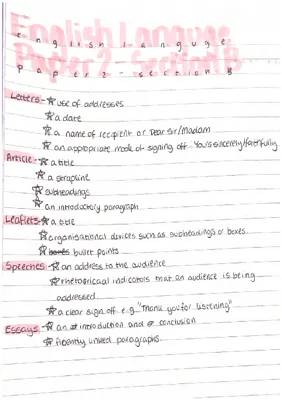 English Language
Paper 2 - Section B
english language
paper 2 - section B
Letters - ☆ use of addresses
☆ a date
☆ a name of recipient or Dear Sir/Madam
☆ an appropriate mode of signing off Yours sincerely/faithfully
Article - ☆ a title
☆ a strapline
☆ subheadings
☆ an introductory paragraph
Leaflets - ☆ a title
☆ organisational devices such as subheadings or boxes
☆ boxes bullet points
Speeches - ☆ an address to the audience
☆ rhetoricaal indicators that an audience is being
addressed
☆ a clear sign off e.g. "Thank you for listening"
Essays - ☆ an introduction and conclusion
☆ fluently linked paragraphs.